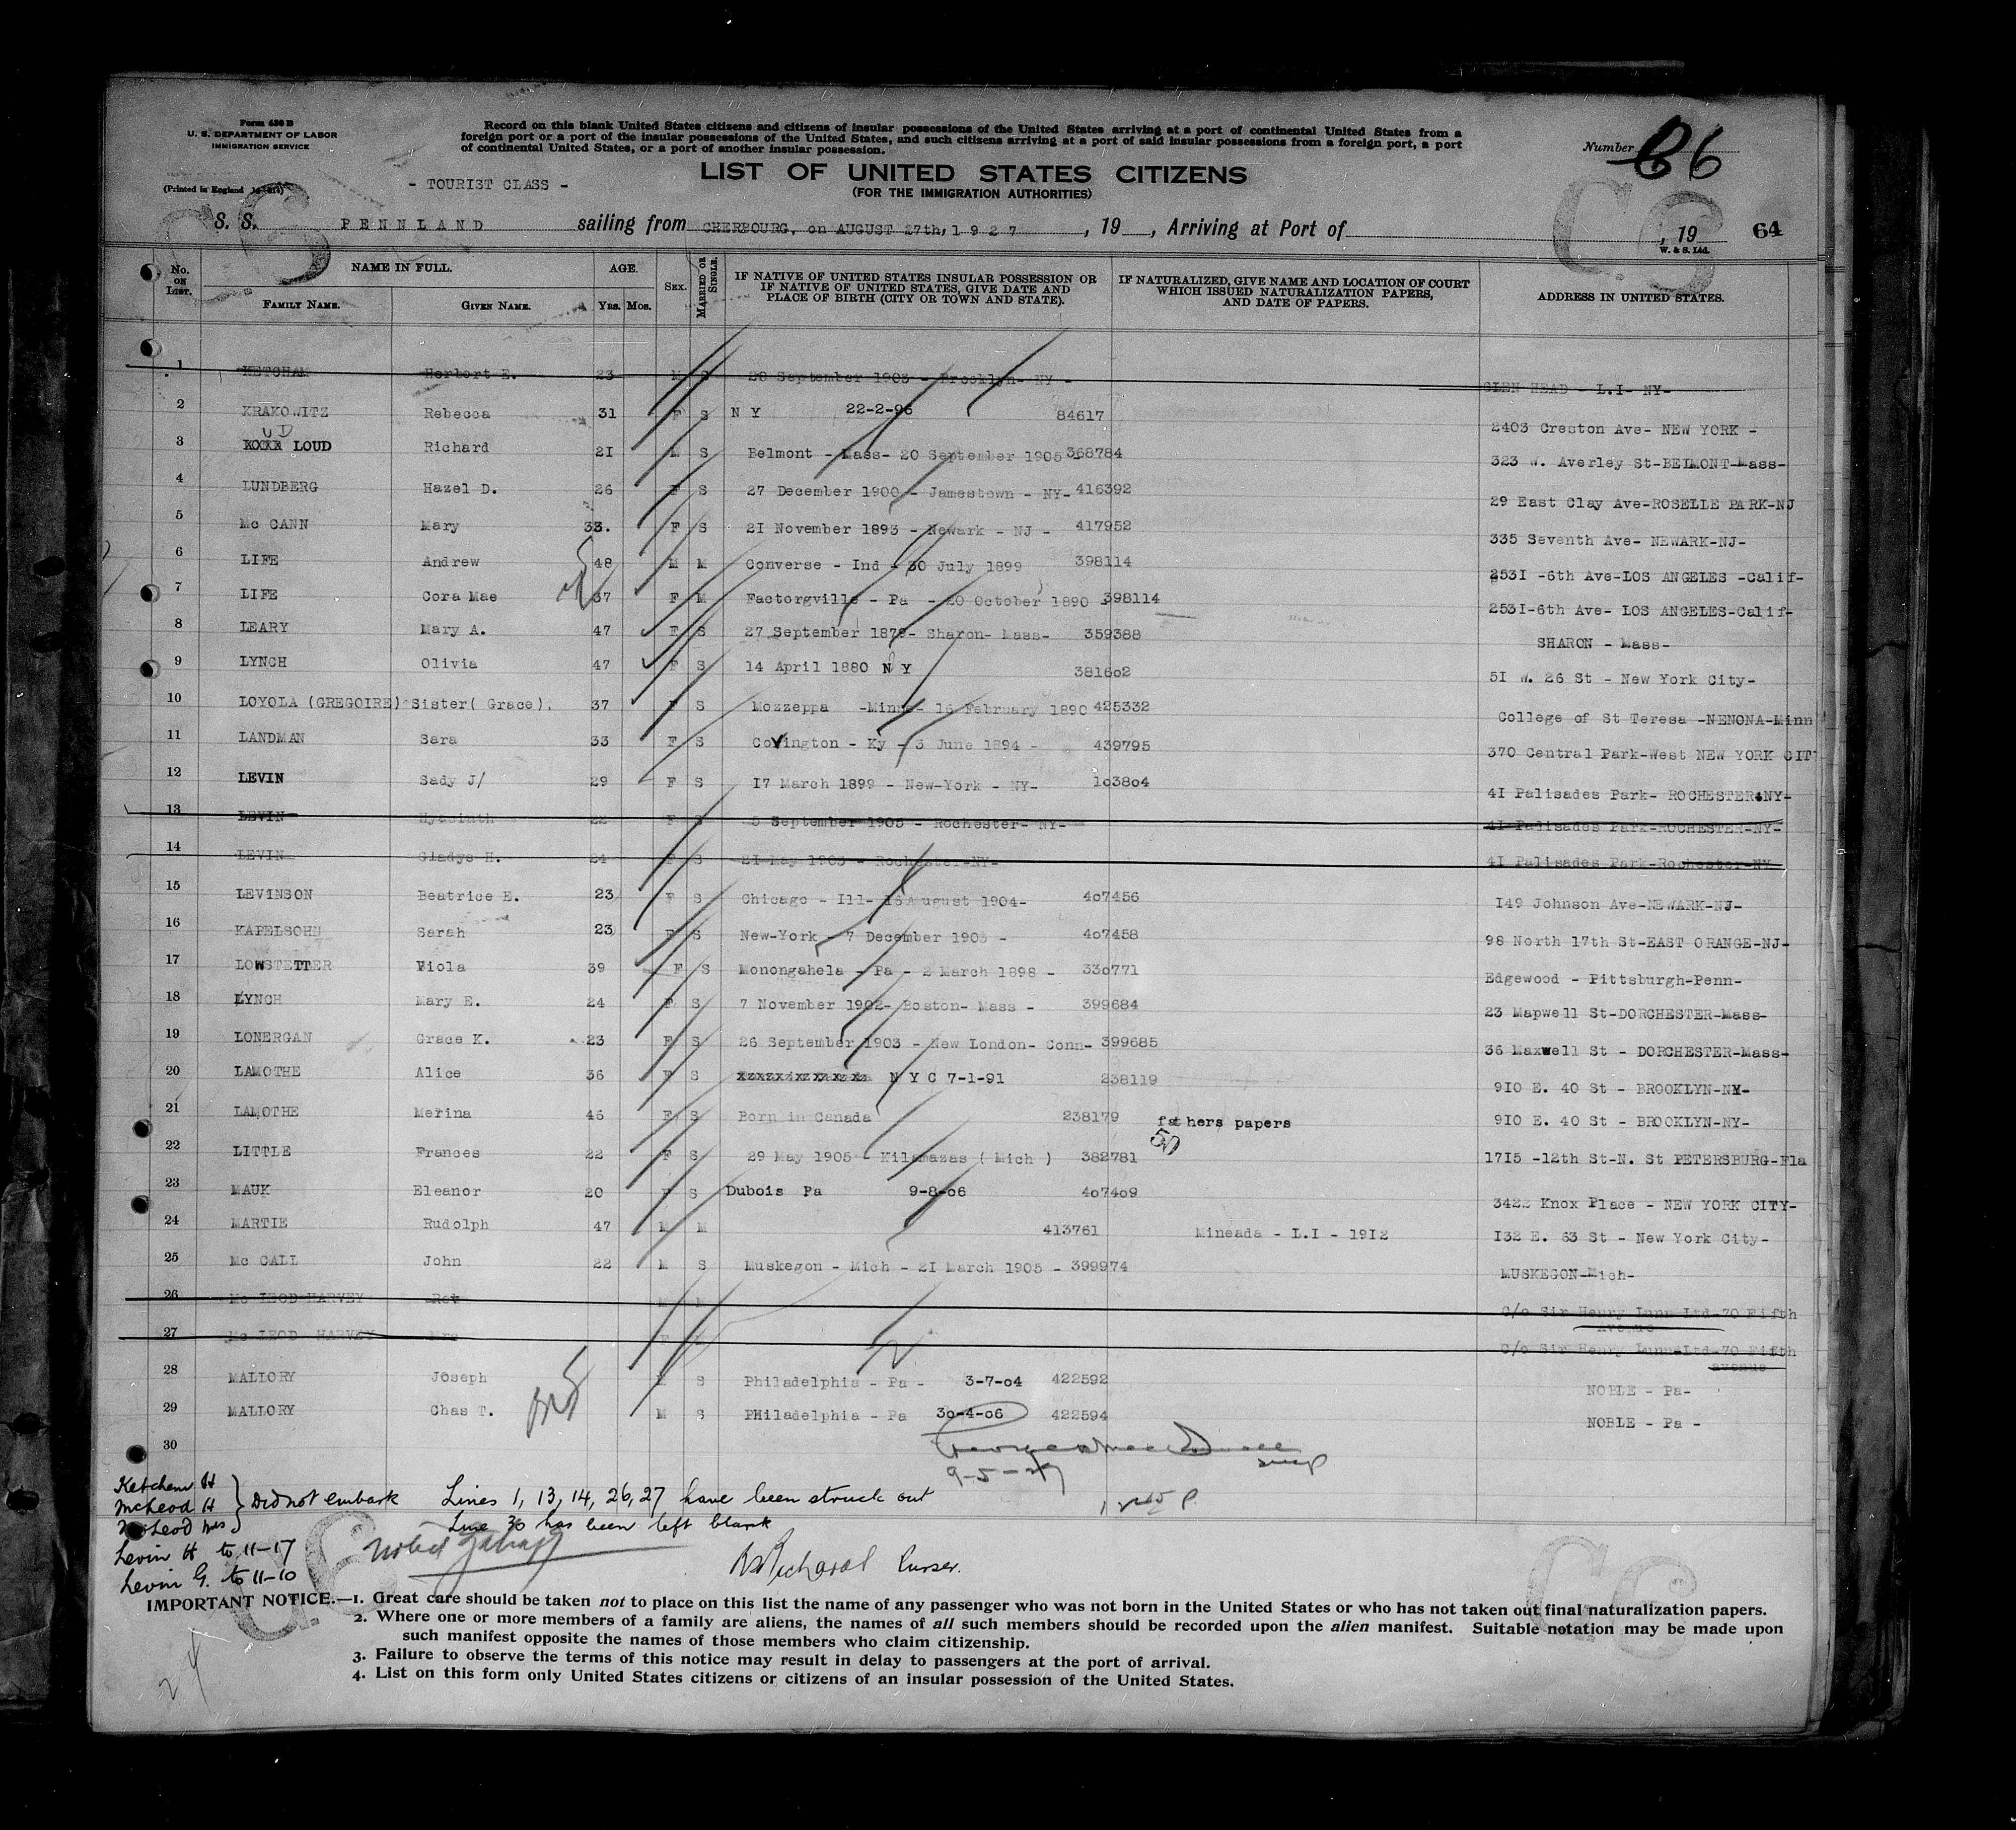 Form 630 B
U. S. DEPARTMENT OF LABOR
IMMIGRATION SERVICE
Record on this blank United States citizens and citizens of insular possessions of the United States arriving at a port of continental United States from a
foreign port or a port of the insular possessions of the United States, and such citizens arriving at a port of said insular possessions from a foreign port, a port
of continental United States, or a port of another insular possession.
Number 86
LIST OF UNITED STATES CITIZENS
(FOR THE IMMIGRATION AUTHORITIES)
(Printed in England
- TOURIST CLASS -
S. S. PENNLAND sailing from CHERBOURG, on AUGUST 27th, 1927, 19 , Arriving at Port of , 19 64
W. & S. Ltd.
No. ON LIST. NAME IN FULL. FAMILY NAME. GIVEN NAME. AGE. YRS. MOS. SEX. MARRIED OR SINGLE. IF NATIVE OF UNITED STATES INSULAR POSSESSION OR IF NATIVE OF UNITED STATES, GIVE DATE AND PLACE OF BIRTH (CITY OR TOWN AND STATE). IF NATURALIZED, GIVE NAME AND LOCATION OF COURT WHICH ISSUED NATURALIZATION PAPERS, AND DATE OF PAPERS. ADDRESS IN UNITED STATES.
1 KETCHAM Herbert E. 23 M S 28 September 1903 - Brooklyn- NY - GLEN HEAD - L.I- NY-
2 KRAKOWITZ Rebecca 31 F S N Y 22-2-96 84617 2403 Creston Ave- NEW YORK -
3 LOUD Richard 21 M S Belmont - Mass- 20 September 1905 - 368784 323 W. Averley St-BELMONT-Mass-
4 LUNDBERG Hazel D. 26 F S 27 December 1900 - Jamestown - NY- 416392 29 East Clay Ave-ROSELLE PARK-NJ
5 Mc CANN Mary 33. F S 21 November 1893 - Newark - NJ - 417952 335 Seventh Ave- NEWARK-NJ-
6 LIFE Andrew 48 M M Converse - Ind - 30 July 1899 398114 2531 -6th Ave-LOS ANGELES -Calif-
7 LIFE Cora Mae 37 F M Factorgville - Pa - 20 October 1890 - 398114 2531-6th Ave- LOS ANGELES-Calif-
8 LEARY Mary A. 47 F S 27 September 1879- Sharon- Mass- 359388 SHARON - Mass-
9 LYNCH Olivia 47 F S 14 April 1880 N Y 381602 51 W. 26 St - New York City-
10 LOYOLA (GREGOIRE) Sister( Grace). 37 F S Mozzeppa -Minn- 16 February 1890 425332 College of St Teresa -NENONA-Minn
11 LANDMAN Sara 33 F S Covington - Ky - 3 June 1894 - 439795 370 Central Park-West NEW YORK CIT
12 LEVIN Sady J/ 29 F S 17 March 1899 - New-York - NY- 103804 41 Palisades Park- ROCHESTER-NY-
13 LEVIN Hyacinth 22 F S 5 September 1905 - Rochester- NY- 41 Palisades Park-ROCHESTER-NY-
14 LEVIN Gladys H. 24 F S 21 May 1903 - Rochester-NY- 41 Palisades Park-Rochester-NY
15 LEVINSON Beatrice E. 23 F S Chicago - Ill- 16 August 1904- 407456 149 Johnson Ave-NEWARK-NJ-
16 KAPELSOHN Sarah 23 F S New-York - 7 December 1903 - 407458 98 North 17th St-EAST ORANGE-NJ-
17 LOWSTETTER Viola 39 F S Monongahela - Pa - 2 March 1898 - 330771 Edgewood - Pittsburgh-Penn-
18 LYNCH Mary E. 24 F S 7 November 1902- Boston- Mass - 399684 23 Mapwell St-DORCHESTER-Mass-
19 LONERGAN Grace K. 23 F S 26 September 1903 - New London- Conn- 399685 36 Maxwell St - DORCHESTER-Mass-
20 LAMOTHE Alice 36 F S N Y C 7-1-91 238119 910 E. 40 St - BROOKLYN-NY-
21 LAMOTHE Merina 46 F S Born in Canada 238179 fathers papers 910 E. 40 St - BROOKLYN-NY-
50
22 LITTLE Frances 22 F S 29 May 1905 - Kilamazas ( Mich ) 382781 1715 -12th St-N. St PETERSBURG-Fla
23 MAUK Eleanor 20 F S Dubois Pa 9-8-06 407409 3422 Knox Place - NEW YORK CITY-
24 MARTIE Rudolph 47 M M 413761 Mineada - L.I - 1912 132 E. 63 St - New York City-
25 Mc CALL John 22 M S Muskegon - Mich - 21 March 1905 - 399974 MUSKEGON-Mich-
26 Mc LEOD HARVEY Rev M M C/o Sir Henry Lunn Ltd-70 Fifth Avenue
27 Mc LEOD HARVEY Mrs F M C/o Sir Henry Lunn-Ltd-70 Fifth avenue
28 MALLORY Joseph M S Philadelphia - Pa - 3-7-04 422592 NOBLE - Pa-
29 MALLORY Chas T. M S PHiladelphia - Pa 30-4-06 422594 NOBLE - Pa -
30
9-5-27
Ketchem H
McLeod H
McLeod Mrs
Did not embark
Lines 1, 13, 14, 26, 27 have been struck out
Line 30 has been left blank
Levin H to 11-17
Levin G. to 11-10
Purser.
IMPORTANT NOTICE.—1. Great care should be taken not to place on this list the name of any passenger who was not born in the United States or who has not taken out final naturalization papers.
2. Where one or more members of a family are aliens, the names of all such members should be recorded upon the alien manifest. Suitable notation may be made upon
such manifest opposite the names of those members who claim citizenship.
3. Failure to observe the terms of this notice may result in delay to passengers at the port of arrival.
4. List on this form only United States citizens or citizens of an insular possession of the United States.
24